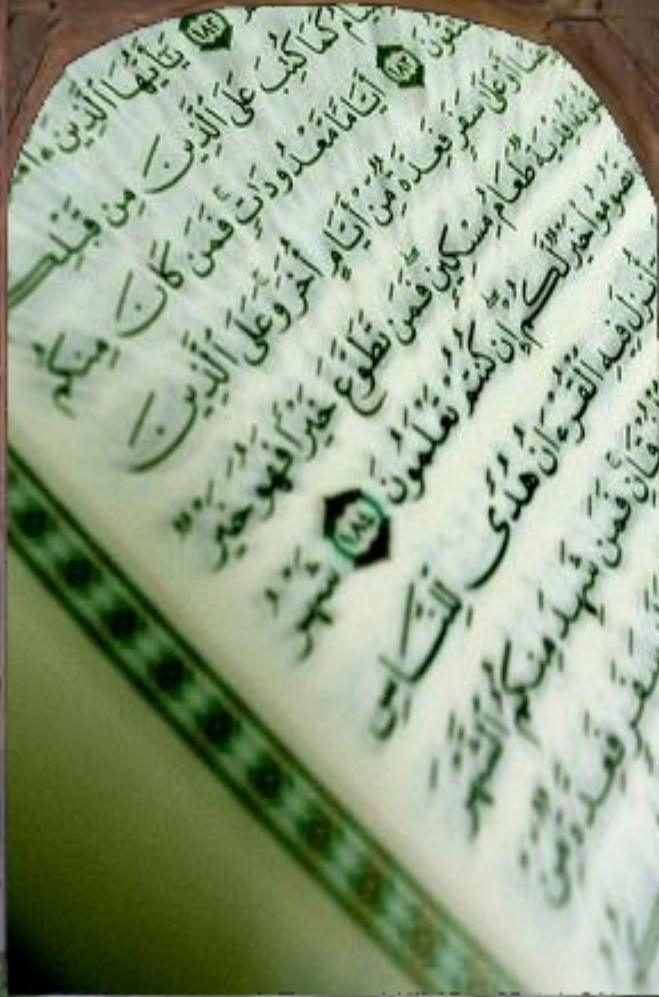 ١٨٢ يَٰٓأَيُّهَا ٱلَّذِينَ
كَمَا كُتِبَ عَلَى ٱلَّذِينَ مِن
١٨٣ أَيَّامًا مَّعْدُودَٰتٍ ۚ فَمَن كَانَ مِنكُم
أَوْ عَلَىٰ سَفَرٍ فَعِدَّةٌ مِّنْ أَيَّامٍ أُخَرَ ۚ وَعَلَى ٱلَّذِينَ
فِدْيَةٌ طَعَامُ مِسْكِينٍ ۖ فَمَن تَطَوَّعَ خَيْرًا فَهُوَ خَيْرٌ
تَصُومُوا۟ خَيْرٌ لَّكُمْ ۖ إِن كُنتُمْ تَعْلَمُونَ ١٨٤ شَهْرُ
أُنزِلَ فِيهِ ٱلْقُرْءَانُ هُدًى لِّلنَّاسِ
فَمَن شَهِدَ مِنكُمُ ٱلشَّهْرَ
سَفَرٍ فَعِدَّةٌ مِّنْ